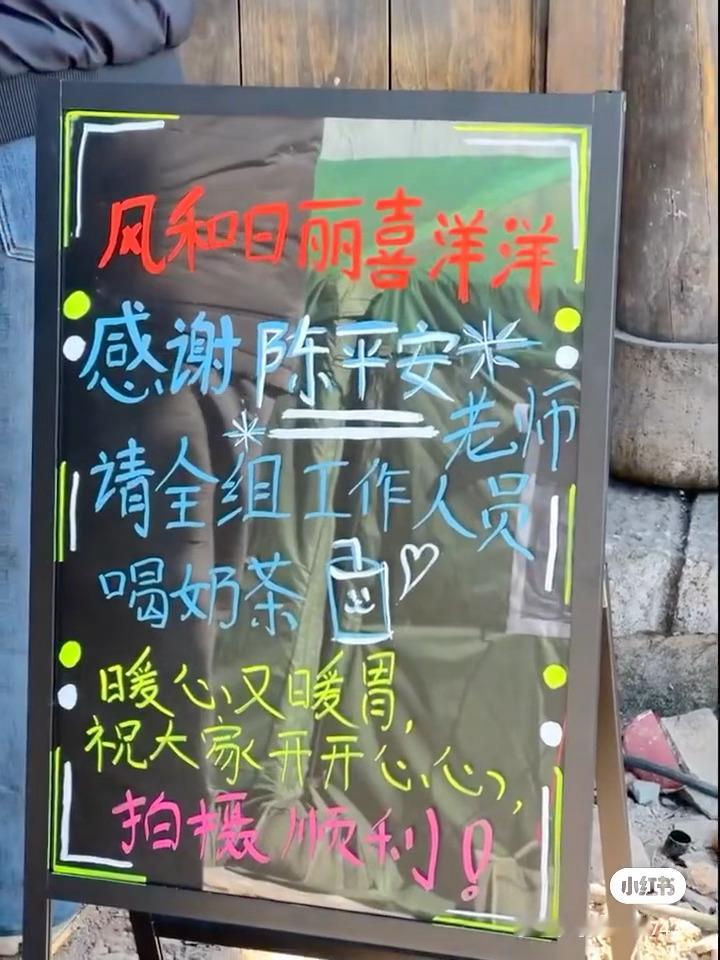 风和日丽喜洋洋
感谢陈平安
老师
请全组工作人员
喝奶茶
暖心又暖胃,
祝大家开开心心,
拍摄顺利!
小红书